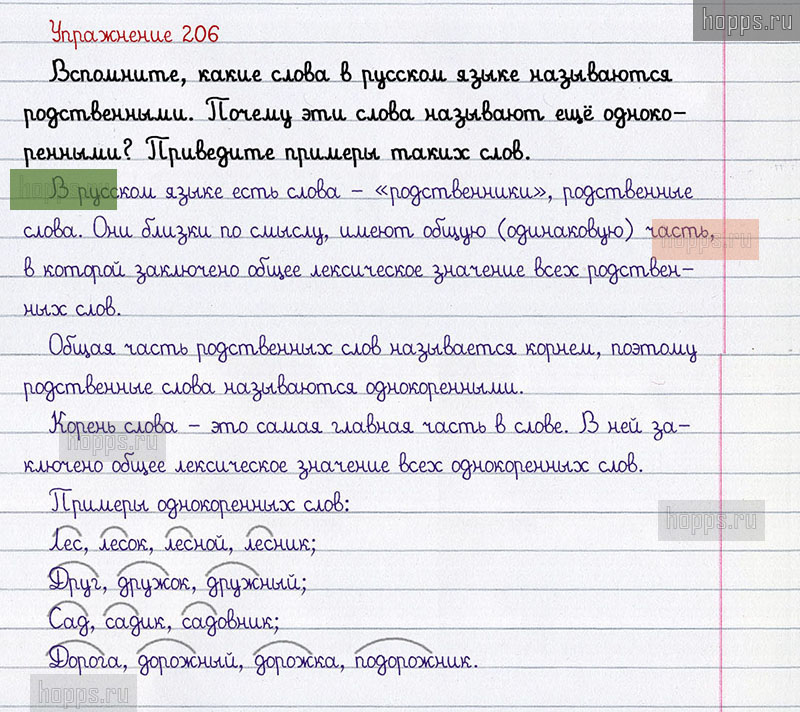 hopps.ru
Упражнение 206
Вспомните, какие слова в русском языке называются
родственными. Почему эти слова называют ещё одноко-
ренными? Приведите примеры таких слов.
В русском языке есть слова – «родственники», родственные
слова. Они близки по смыслу, имеют общую (одинаковую) часть,
в которой заключено общее лексическое значение всех родствен-
ных слов.
Общая часть родственных слов называется корнем, поэтому
родственные слова называются однокоренными.
Корень слова – это самая главная часть в слове. В ней за-
ключено общее лексическое значение всех однокоренных слов.
Примеры однокоренных слов:
hopps.ru
Лес, лесок, лесной, лесник;
Друг, дружок, дружный;
Сад, садик, садовник;
Дорога, дорожный, дорожка, подорожник.
hopps.ru